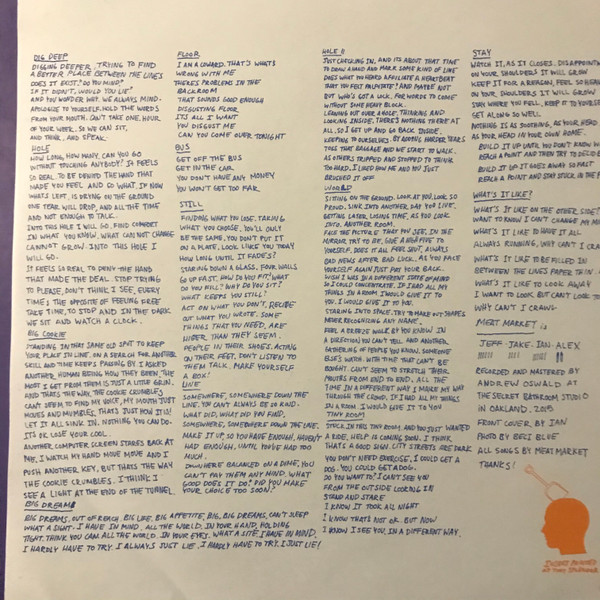 DIG DEEP
DIGGING DEEPER, TRYING TO FIND
A BETTER PLACE BETWEEN THE LINES
DOES IT EXIST? DO YOU MIND?
IF IT DIDN'T, WOULD YOU LIE?
AND YOU WONDER WHY. WE ALWAYS MIND.
APOLOGIZE TO YOURSELF. HOLD THE WORDS
FROM YOUR MOUTH. CAN'T TAKE. ONE HOUR
OF YOUR WEEK, SO WE CAN SIT,
AND THINK, AND SPEAK.
HOLE
HOW LONG, HOW MANY, CAN YOU GO
WITHOUT TOUCHING ANYBODY? IT FEELS
SO REAL TO BE BEHIND THE HAND THAT
MADE YOU FEEL AND SO WHAT IF NOW
WHAT'S LEFT, IS DRYING ON THE GROUND
ONE TEAR WILL DROP, AND ALL THE TIME
AND NOT ENOUGH TO TALK.
INTO THIS HOLE I WILL GO. FIND COMFORT
IN WHAT YOU KNEW, WILL NOT CHANGE
CANNOT GROW. INTO THIS HOLE I
WILL GO.
IT FEELS SO REAL TO DENY THE HAND
THAT MADE THE DEAL. STOP TRYING
TO PLEASE, DON'T THINK I SEE, EVERY
TIMES THE OPPOSITE OF FEELING FREE
TAKE TIME, TO STOP AND IN THE DARK
WE SIT AND WATCH A CLOCK.
BIG COOKIE
STANDING IN THAT SAME OLD SPOT TO KEEP
YOUR PLACE IN LINE. ON A SEARCH FOR ANOTHER
SKILL AND TIME KEEPS PASSING BY. I ASKED
ANOTHER, HUMAN BEING HOW THEY BEEN, THE
MOST I GET FROM THEM IS JUST A LITTLE GRIN.
AND THAT'S THE WAY, THE COOKIE CRUMBLES
CAN'T SEEM TO FIND MY VOICE, MY MOUTH JUST
MOVES AND MUMBLES, THAT'S JUST HOW IT IS!
LET IT ALL SINK IN. NOTHING YOU CAN DO.
IT'S OK LOSE YOUR COOL
ANOTHER COMPUTER SCREEN STARES BACK AT
ME, I WATCH MY HAND MOVE MOVE AND I
PUSH ANOTHER KEY, BUT THATS THE WAY
THE COOKIE CRUMBLES. I THINK I
SEE A LIGHT AT THE END OF THE TUNNEL.
BIG DREAMS
BIG DREAMS. OUT OF REACH. BIG LIFE. BIG APPETITE, BIG, BIG DREAMS, CAN'T SLEEP
WHAT A SIGHT. I HAVE IN MIND. ALL THE WORLD. IN YOUR HAND, HOLDING
TIGHT. THINK YOU CAN ALL THE WORLD. IN YOUR EYES. WHAT A SITE, I HAVE IN MIND.
I HARDLY HAVE TO TRY. I ALWAYS JUST LIE. I HARDLY HAVE TO TRY. I JUST LIE!
FLOOR
I AM A COWARD. THAT'S WHATS
WRONG WITH ME
THERE'S PROBLEMS IN THE
BACKROOM
THAT SOUNDS GOOD ENOUGH
DISGUSTING FLOOR
ITS ALL I WANT
YOU DISGUST ME
CAN YOU COME OVER TONIGHT
BUS
GET OFF THE BUS
GET IN THE CAR.
YOU DON'T HAVE ANY MONEY
YOU WON'T GET TOO FAR.
STILL
FINDING WHAT YOU LOSE, TAKING
WHAT YOU CHOOSE, YOU'LL ONLY
BE THE SAME, YOU DON'T PUT IT
ON A PLATE. LOOK LIKE YOU TODAY
HOW LONG UNTIL IT FADES?
STARING DOWN A GLASS. FOUR WALLS
GO UP FAST, HOW DO YOU FIT? WHAT
DO YOU FILL? WHY DO YOU SIT?
WHAT KEEPS YOU STILL?
ACT ON WHAT YOU DON'T, RECIBE
OUT WHAT YOU WROTE. SOME
THINGS THAT YOU NEED, ARE
WIDER THAN THEY SEEM.
PEOPLE IN THEIR SHOES, ACTING
ON THEIR FEET, DON'T LISTEN TO
THEM TALK. MAKE YOURSELF
A BOX!
LINE
SOMEWHERE, SOMEWHERE DOWN THE
LINE. YOU CAN'T ALWAYS BE SO KIND.
WHAT DID, WHAT DID YOU FIND,
SOMEWHERE, SOMEWHERE DOWN THE LINE.
MAKE IT UP, SO YOU HAVE ENOUGH, HAVEN'T
HAD ENOUGH, UNTIL YOU'VE HAD TOO
MUCH.
DOWN HERE BALANCED ON A DIME, YOU
CAN'T PAY THEM ANY MIND. WHAT
GOOD DOES IT DO? DID YOU MAKE
YOUR CHOICE TOO SOON?
HOLE II
JUST CHECKING IN, AND ITS ABOUT THAT TIME
TO DRAW A HAND AND MARK SOME KIND OF LINE
DOES WHAT YOU HEARD AFFILIATE A HEARTBEAT
THAT YOU FELT PALPITATE? AND MAYBE NOT
BUT WHO'S GOT A LICK, FOR WORDS TO COME
WITHOUT SOME HEAVY BLOCK.
LEANING OUT OVER A LEDGE, THINKING AND
LOOKING INSIDE. THERE'S NOTHING THERE AT
ALL, SO I GET UP AND GO BACK INSIDE.
KEEPING TO OURSELVES! BY ADDING HARDER YEARS
TOSS THAT BAGGAGE AND WE START TO WALK.
AS OTHERS TRIPPED AND STOPPED TO THINK
TOO HARD. I LIKED HOW ME AND YOU JUST
BRUSHED IT OFF
WOULD
SITTING ON THE GROUND. LOOK AT YOU, LOOK SO
PROUD. SINK INTO ANOTHER DAY YOU LIVE.
GETTING LASER, LOSING TIME, AS YOU LOOK
INTO, ANOTHER ROOM.
FACE THE PICTURE THAT YOU SEE, IN THE
MIRROR TRY TO BE, GIVE A HIGH FIVE TO
YOURSELF, DOES IT ALL FEEL SHIT, ALWAYS
BAD NEWS AFTER BAD LUCK. AS YOU FACE
YOURSELF AGAIN JUST PAT YOUR BACK.
WISH I WAS IN A DIFFERENT STATE OF MIND
SO I COULD CONCENTRATE. IF I HAD ALL MY
THINGS IN A ROOM I WOULD GIVE IT TO
YOU. I WOULD GIVE IT TO YOU.
STARING INTO SPACE. TRY TO MAKE OUT SHAPES
NEVER RECOGNIZING ANY NAME.
FEEL A BREEZE WALK BY YOU KNEW IN
A DIRECTION YOU CAN'T TELL AND ANOTHER,
GATHERING OF PEOPLE YOU KNOW. SOMEONE
ELSE'S WATCH. WITH TIME THAT CAN'T BE
BOUGHT. CAN'T SEEM TO STRETCH THEIR
MOUTHS FROM END TO END. ALL THE
TIME IN A DIFFERENT WAY I MAKE MY WAY
THROUGH THE CROWD. IF I HAD ALL MY THINGS
IN A ROOM I WOULD GIVE IT TO YOU
TINY ROOM
STUCK IN THIS TINY ROOM, AND YOU JUST WANTED
A RIDE, HELP IS COMING SOON. I THINK
THATS A GOOD SIGN. CITY STREETS ARE DARK
YOU DON'T NEED EXERCISE, I COULD GET A
DOG. YOU COULD GET A DOG.
DO YOU WANT TO? I CAN'T SEE YOU
FROM THE OUTSIDE LOOKING IN
STAND AND STARE
I KNOW IT TOOK ALL NIGHT
I KNOW THATS NOT OK. BUT NOW
I KNOW I SEE YOU, IN A DIFFERENT WAY.
STAY
WATCH IT, AS IT CLOSES. DISAPPOINTM
ON YOUR SHOULDERS IT WILL GROW
KEEP IT FOR A REASON, FEEL SO HEAV
ON YOUR, SHOULDERS IT WILL GROW
STAY WHERE YOU FELL, KEEP IT TO YOURSE
GET ALONG SO WELL.
NOTHING IS AS SOOTHING, AS YOUR HEAD
AS YOUR HEAD IN YOUR OWN HOME.
BUILD IT UP UNTIL YOU DON'T KNOW W
REACH A POINT AND THEN TRY TO DECIDE
BUILD IT UP IT GOES AWAY SO FAST
REACH A POINT AND STAY STUCK IN THE P
WHAT'S IT LIKE?
WHAT'S IT LIKE ON THE OTHER SIDE?
WANT TO KNOW I CAN'T CHANGE MY M
WHAT'S IT LIKE TO HAVE IT ALL
ALWAYS RUNNING, WHY CAN'T I CRA
WHAT'S IT LIKE TO BE FILLED IN
BETWEEN THE LINES PAPER THIN.
WHAT'S IT LIKE TO LOOK AWAY
I WANT TO LOOK BUT CAN'T LOOK TO
WHY CAN'T I CRAWL
MEAT MARKET IS
JEFF·JAKE·IAN·ALEX
RECORDED AND MASTERED BY
ANDREW OSWALD AT
THE SECRET BATHROOM STUDIO
IN OAKLAND. 2015
FRONT COVER BY IAN
PHOTO BY BERI BLUE
ALL SONGS BY MEAT MARKET
THANKS!